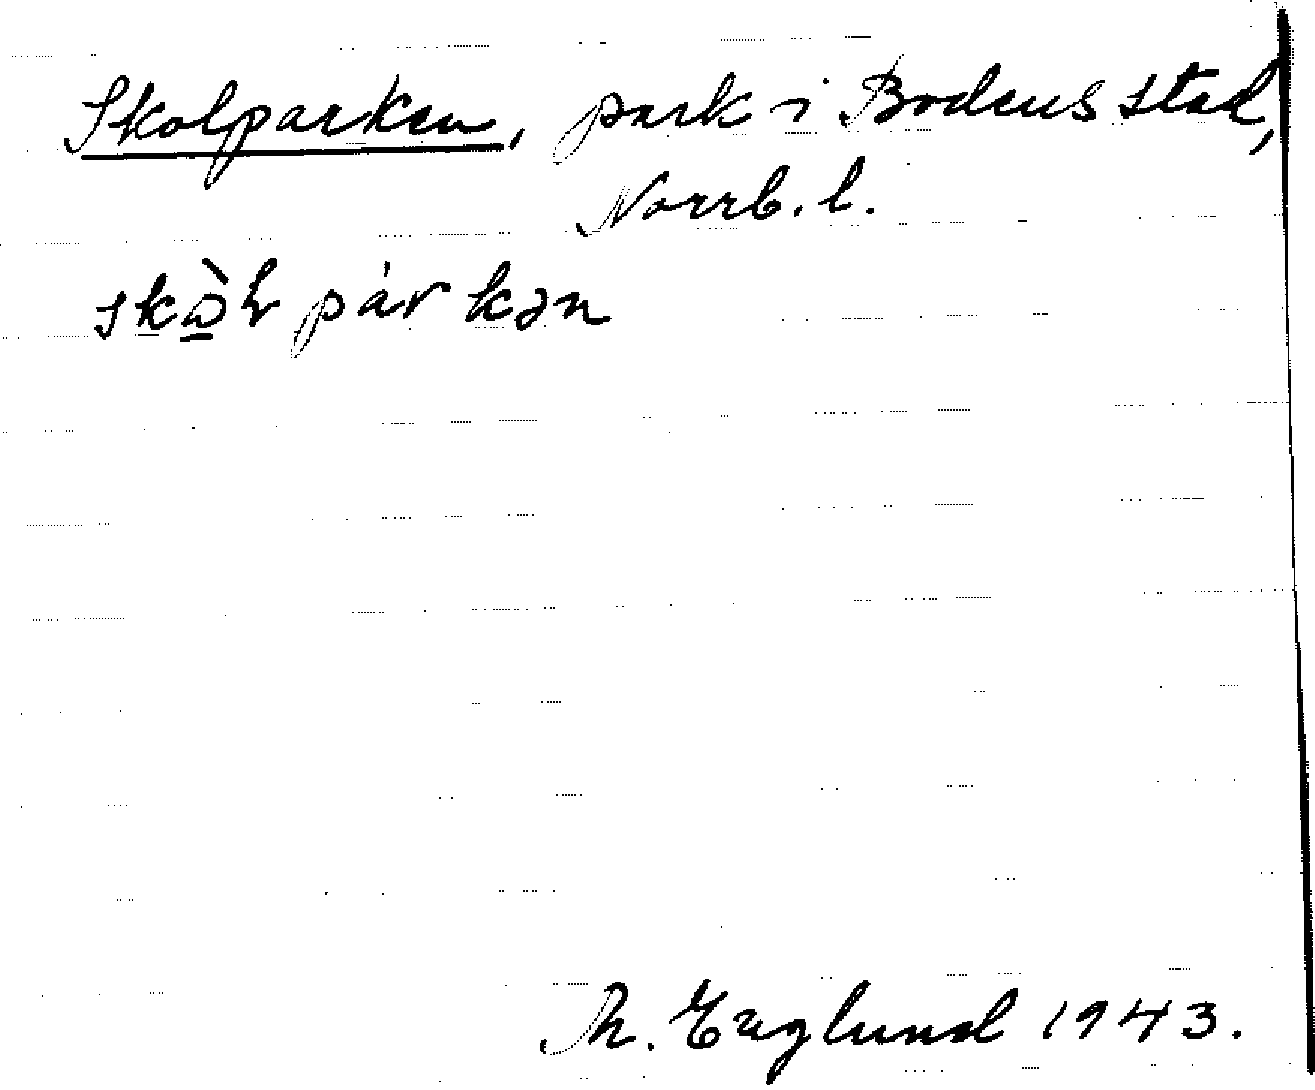 Skolparken, park i Bodens stad,
Norrb. l.
pàrkən
Th. Englund 1943.